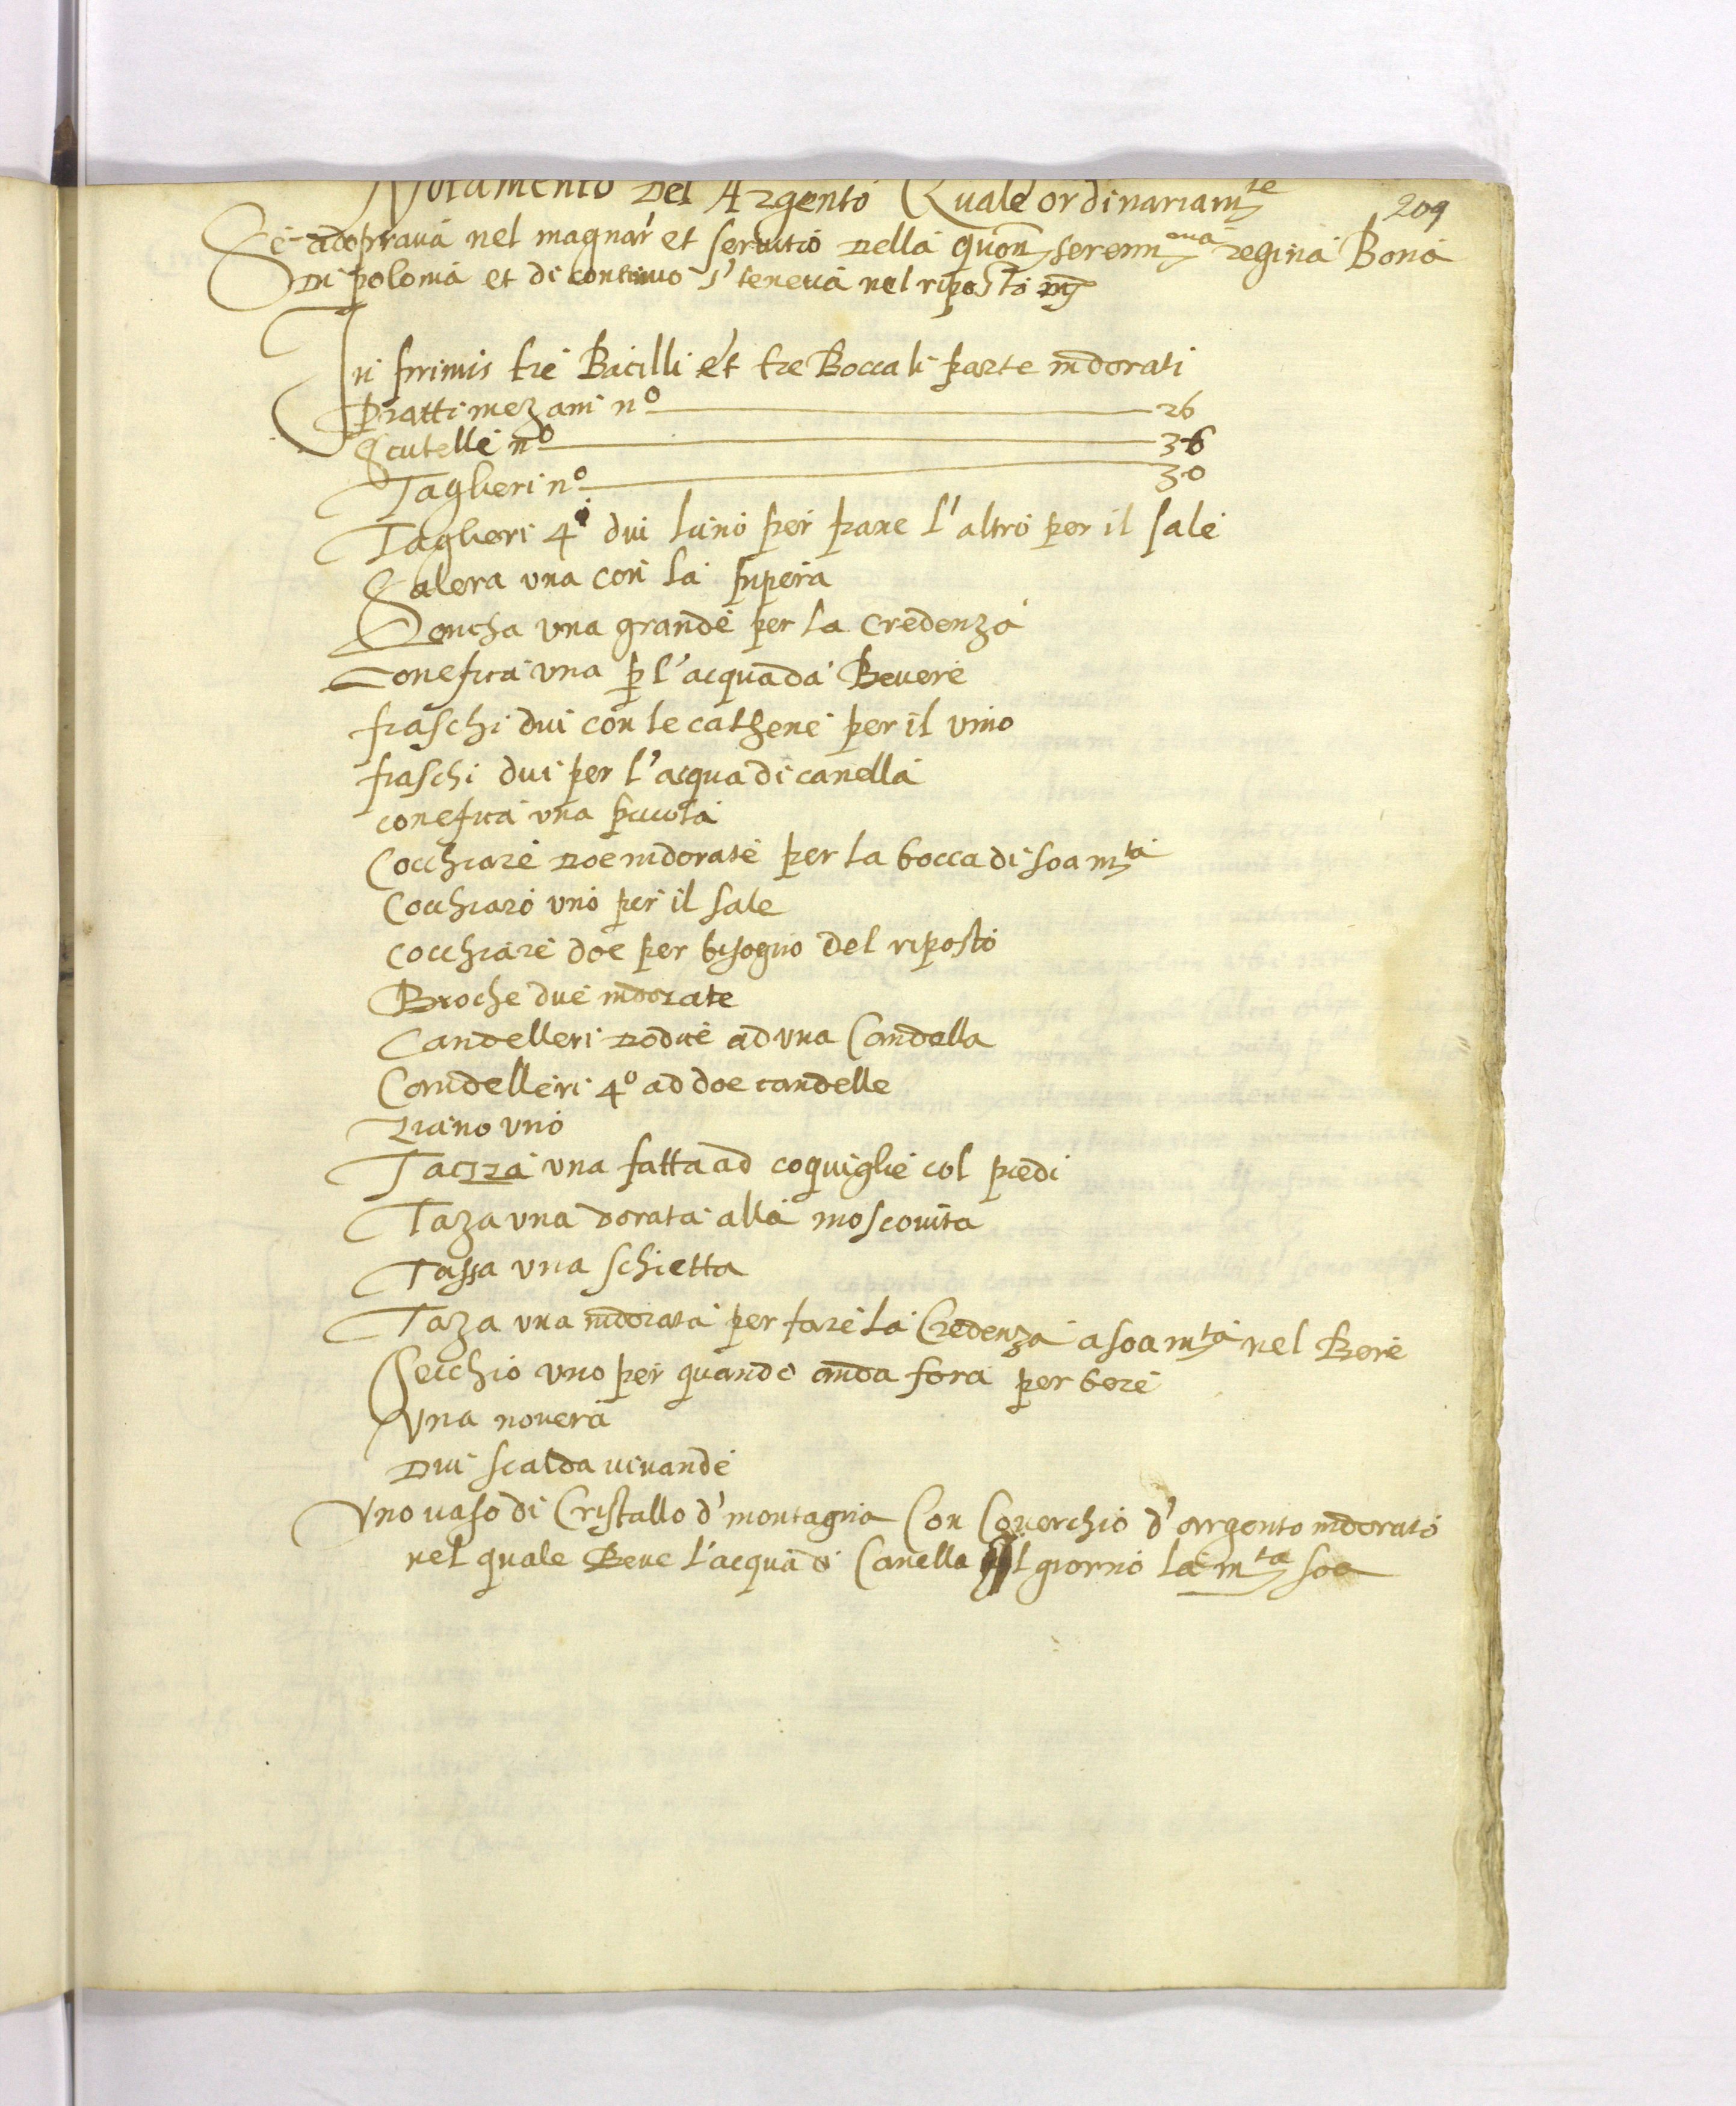 Notamento Del Argento Quale ordinariam.te
209
Se adoprava nel magnar et servitio della quon serenma regina Bona
Di polonia et di continuo s' teneva nel riposto
In primis tre Bacilli et tre Boccali parte indorati
Piatti mezani no 26
Scutelle no 36
Taglieri no 30
Taglieri 4 dui luno per pane l'altro per il sale
Salera una con la
Concha una grande per la Credenza
Conefita una p l'acqua da Bevere
fiaschi dui con le cathene per il vino
fiaschi dui per l'acqua di canella
conefita una picciola
Cocchiare doe indorate per la bocca di soa mta
Cocchiaro uno per il sale
Cocchiare doe per bisogno del riposto
Broche due indorate
Candelleri dodice ad una Candella
Candelleri 4o ad doe candelle
uno
una fatta ad coquiglie col piedi
Taza una dorata alla moscovita
Tassa una schietta
Taza una indorata per fare la Credenza a soa mta nel Bere
Secchio uno per quando anda fora per bere
Una novera
Dui scalda vivande
Uno vaso di Cristallo d' montagna Con Coverchio d' argento indorato
nel quale Beve l'acqua di Canella il giorno la mta soa